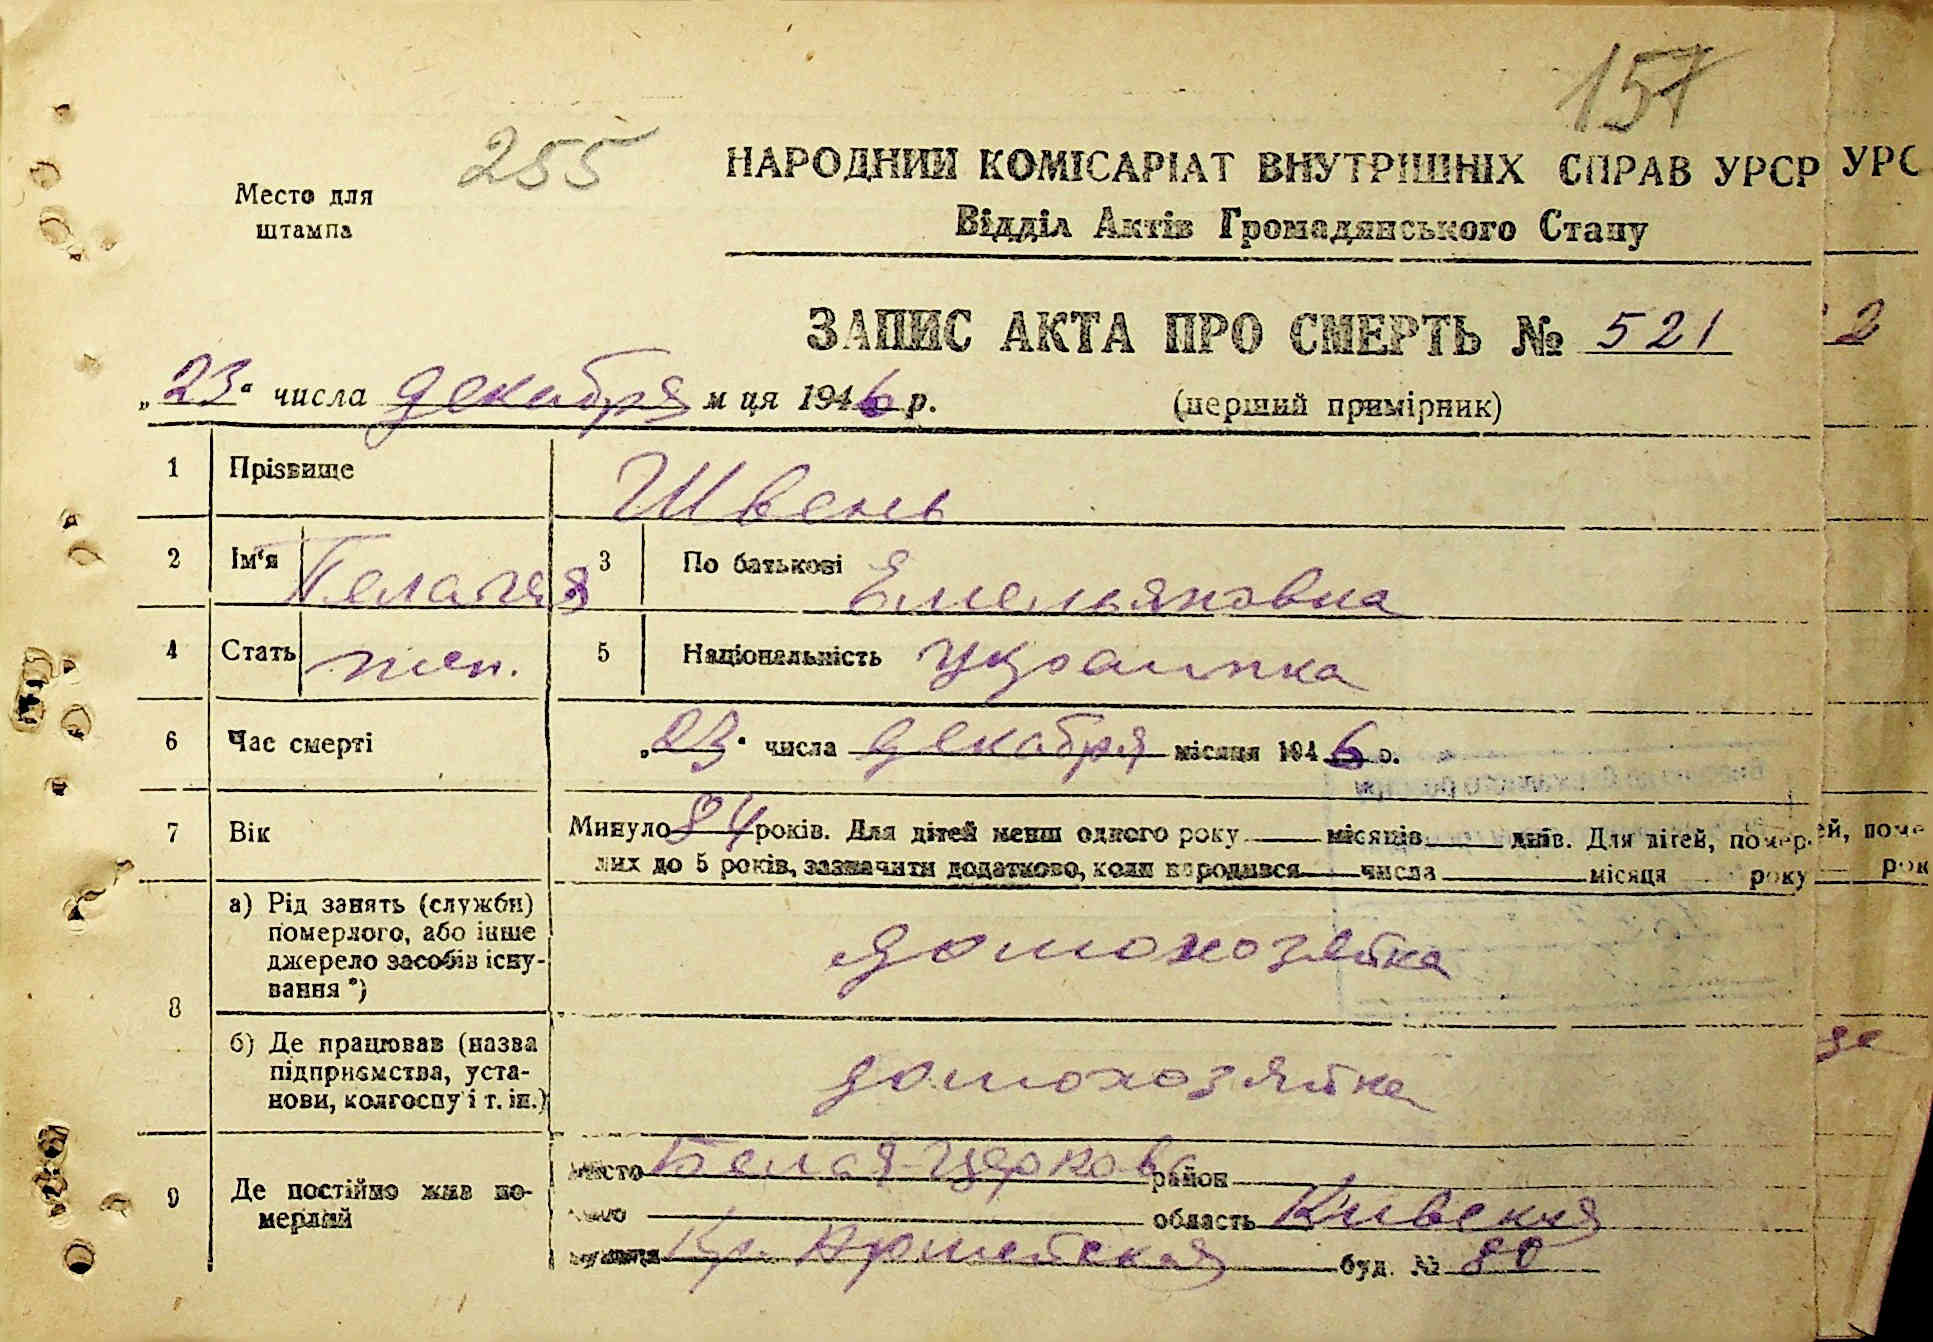 157
255
НАРОДНИЙ КОМІСАРІАТ ВНУТРІШНІХ СПРАВ УРСР УРС
Место для
штампа
Відділ Актів Громадянського Стану
ЗАПИС АКТА ПРО СМЕРТЬ № 521 2
„23" числа декабря м ця 1946 р. (перший примірник)
1 Прізвище Швень
2 Ім'я Пелагея 3 По батькові Емельяновна
4 Стать жен. 5 Національність украинка
6 Час смерті „23" числа декабря місяця 1946 р.
7 Вік Минуло 84 років. Для дітей менш одного року місяців днів. Для дітей, помер- ей, поме
лих до 5 років, зазначити додатково, коли народився числа місяця року рок
8 а) Рід занять (служби)
померлого, або інше
джерело засобів існу-
вання *)
домохозяйка
б) Де працював (назва
підприємства, уста-
нови, колгоспу і т. ін.)
домохозяйка
9 Де постійно жив по-
мерлий
місто Белая-Церковь район
область Киевская
вулиця Кр. Армейская буд. № 80